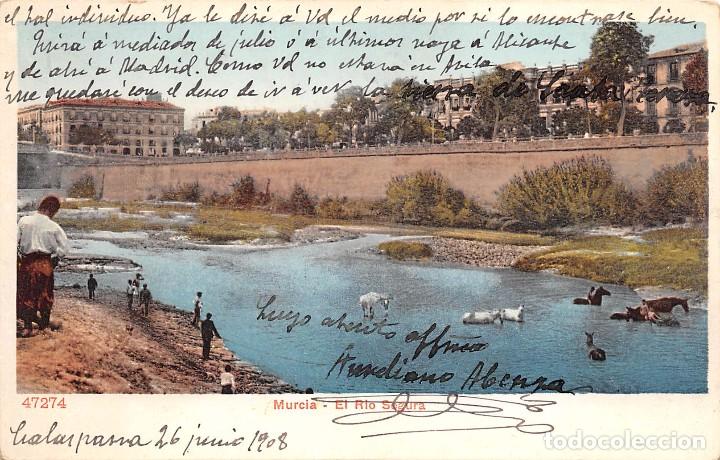 el tal individuo. Ya le diré á Vd el medio por si lo encontrase bien.
Quizá á mediador de julio ó á últimos vaya á Alicante
y de ahí á Madrid. Como Vd no estara en Avila
me quedaré con el deseo de ir á ver la sierra de
Luego atento affmo
Aureliano Abenza
47274 Murcia - El Rio Segura
Calasparra 26 junio 1908
todocoleccion.net